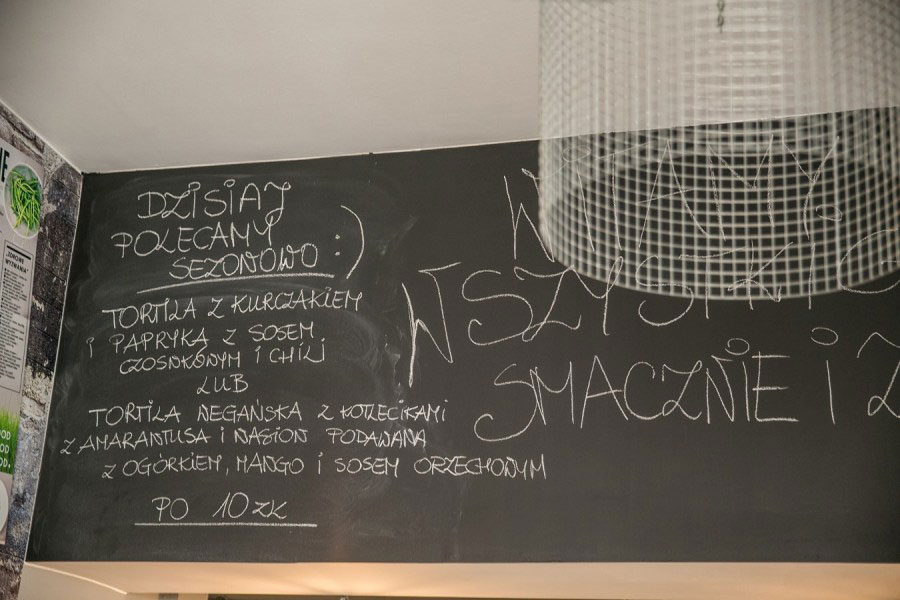 DZISIAJ
POLECAMY
SEZONOWO :)
TORTILA Z KURCZAKIEM
I PAPRYKĄ Z SOSEM
CZOSNKOWYM I CHILI
LUB
TORTILA WEGAŃSKA Z KOTLECIKAMI
Z AMARANTUSA I NASION PODAWANA
Z OGÓRKIEM, MANGO I SOSEM ORZECHOWYM
PO 10 ZŁ
WITAMY
WSZYSTKIC
SMACZNIE I Z
ZDROWE
WYZWANIA